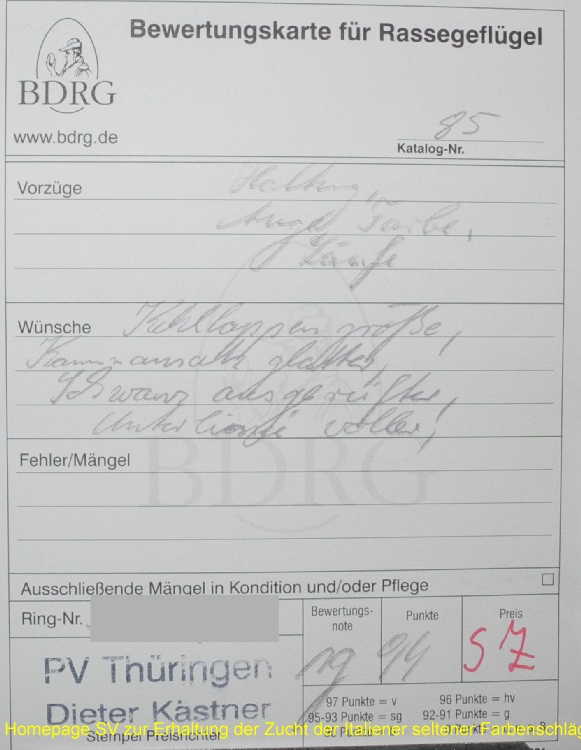 Bewertungskarte für Rassegeflügel
BDRG
www.bdrg.de
85
Katalog-Nr.
Vorzüge
Haltung,
Auge, Farbe,
Läufe
Wünsche Kehllappen größe,
Kammansatz glatter,
Schwanz ausgereifter,
Unterlinie voller,
Fehler/Mängel
BDRG
Ausschließende Mängel in Kondition und/oder Pflege
Ring-Nr.
Bewertungs-
note
Punkte
Preis
94
SZ
PV Thüringen
Dieter Kästner
Stempel Preisrichter
97 Punkte = v
96 Punkte = hv
95-93 Punkte = sg
92-91 Punkte = g
Homepage SV zur Erhaltung der Zucht der Italiener seltener Farbenschlä